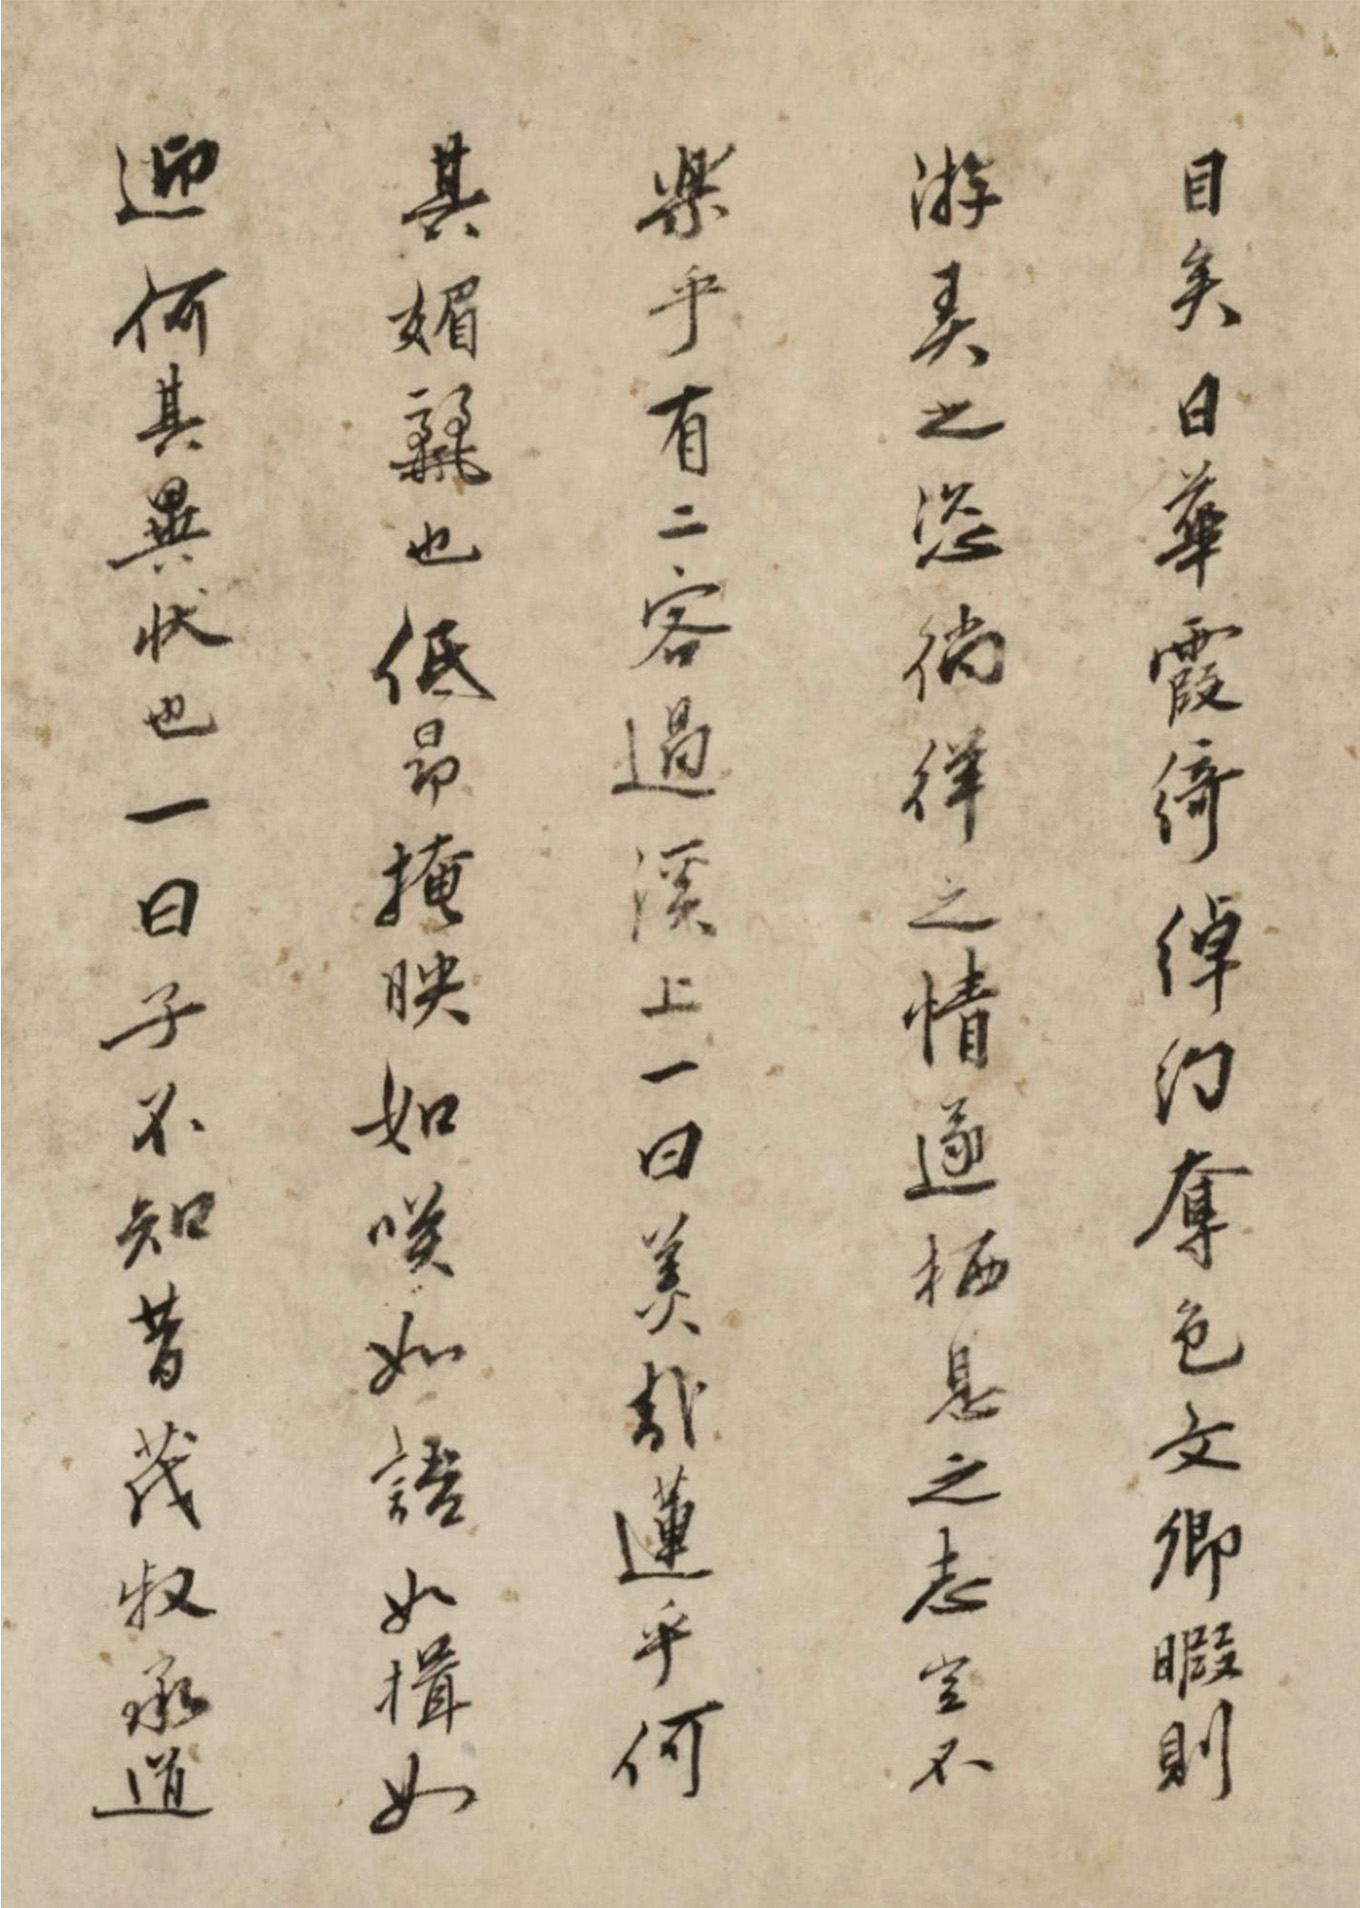 目矣日華霞綺綽約奪色文卿暇則
游之恣徜徉之情遂栖息之志豈不
樂乎有二客過溪上一曰美哉蓮乎何
其媚麗也低昂掩映如咲如語如揖如
迎何其異狀也一曰子不知昔茂叔承道